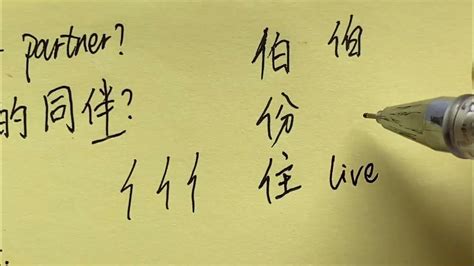 partner? 伯 伯
的同伴? 份
亻亻亻 住 live